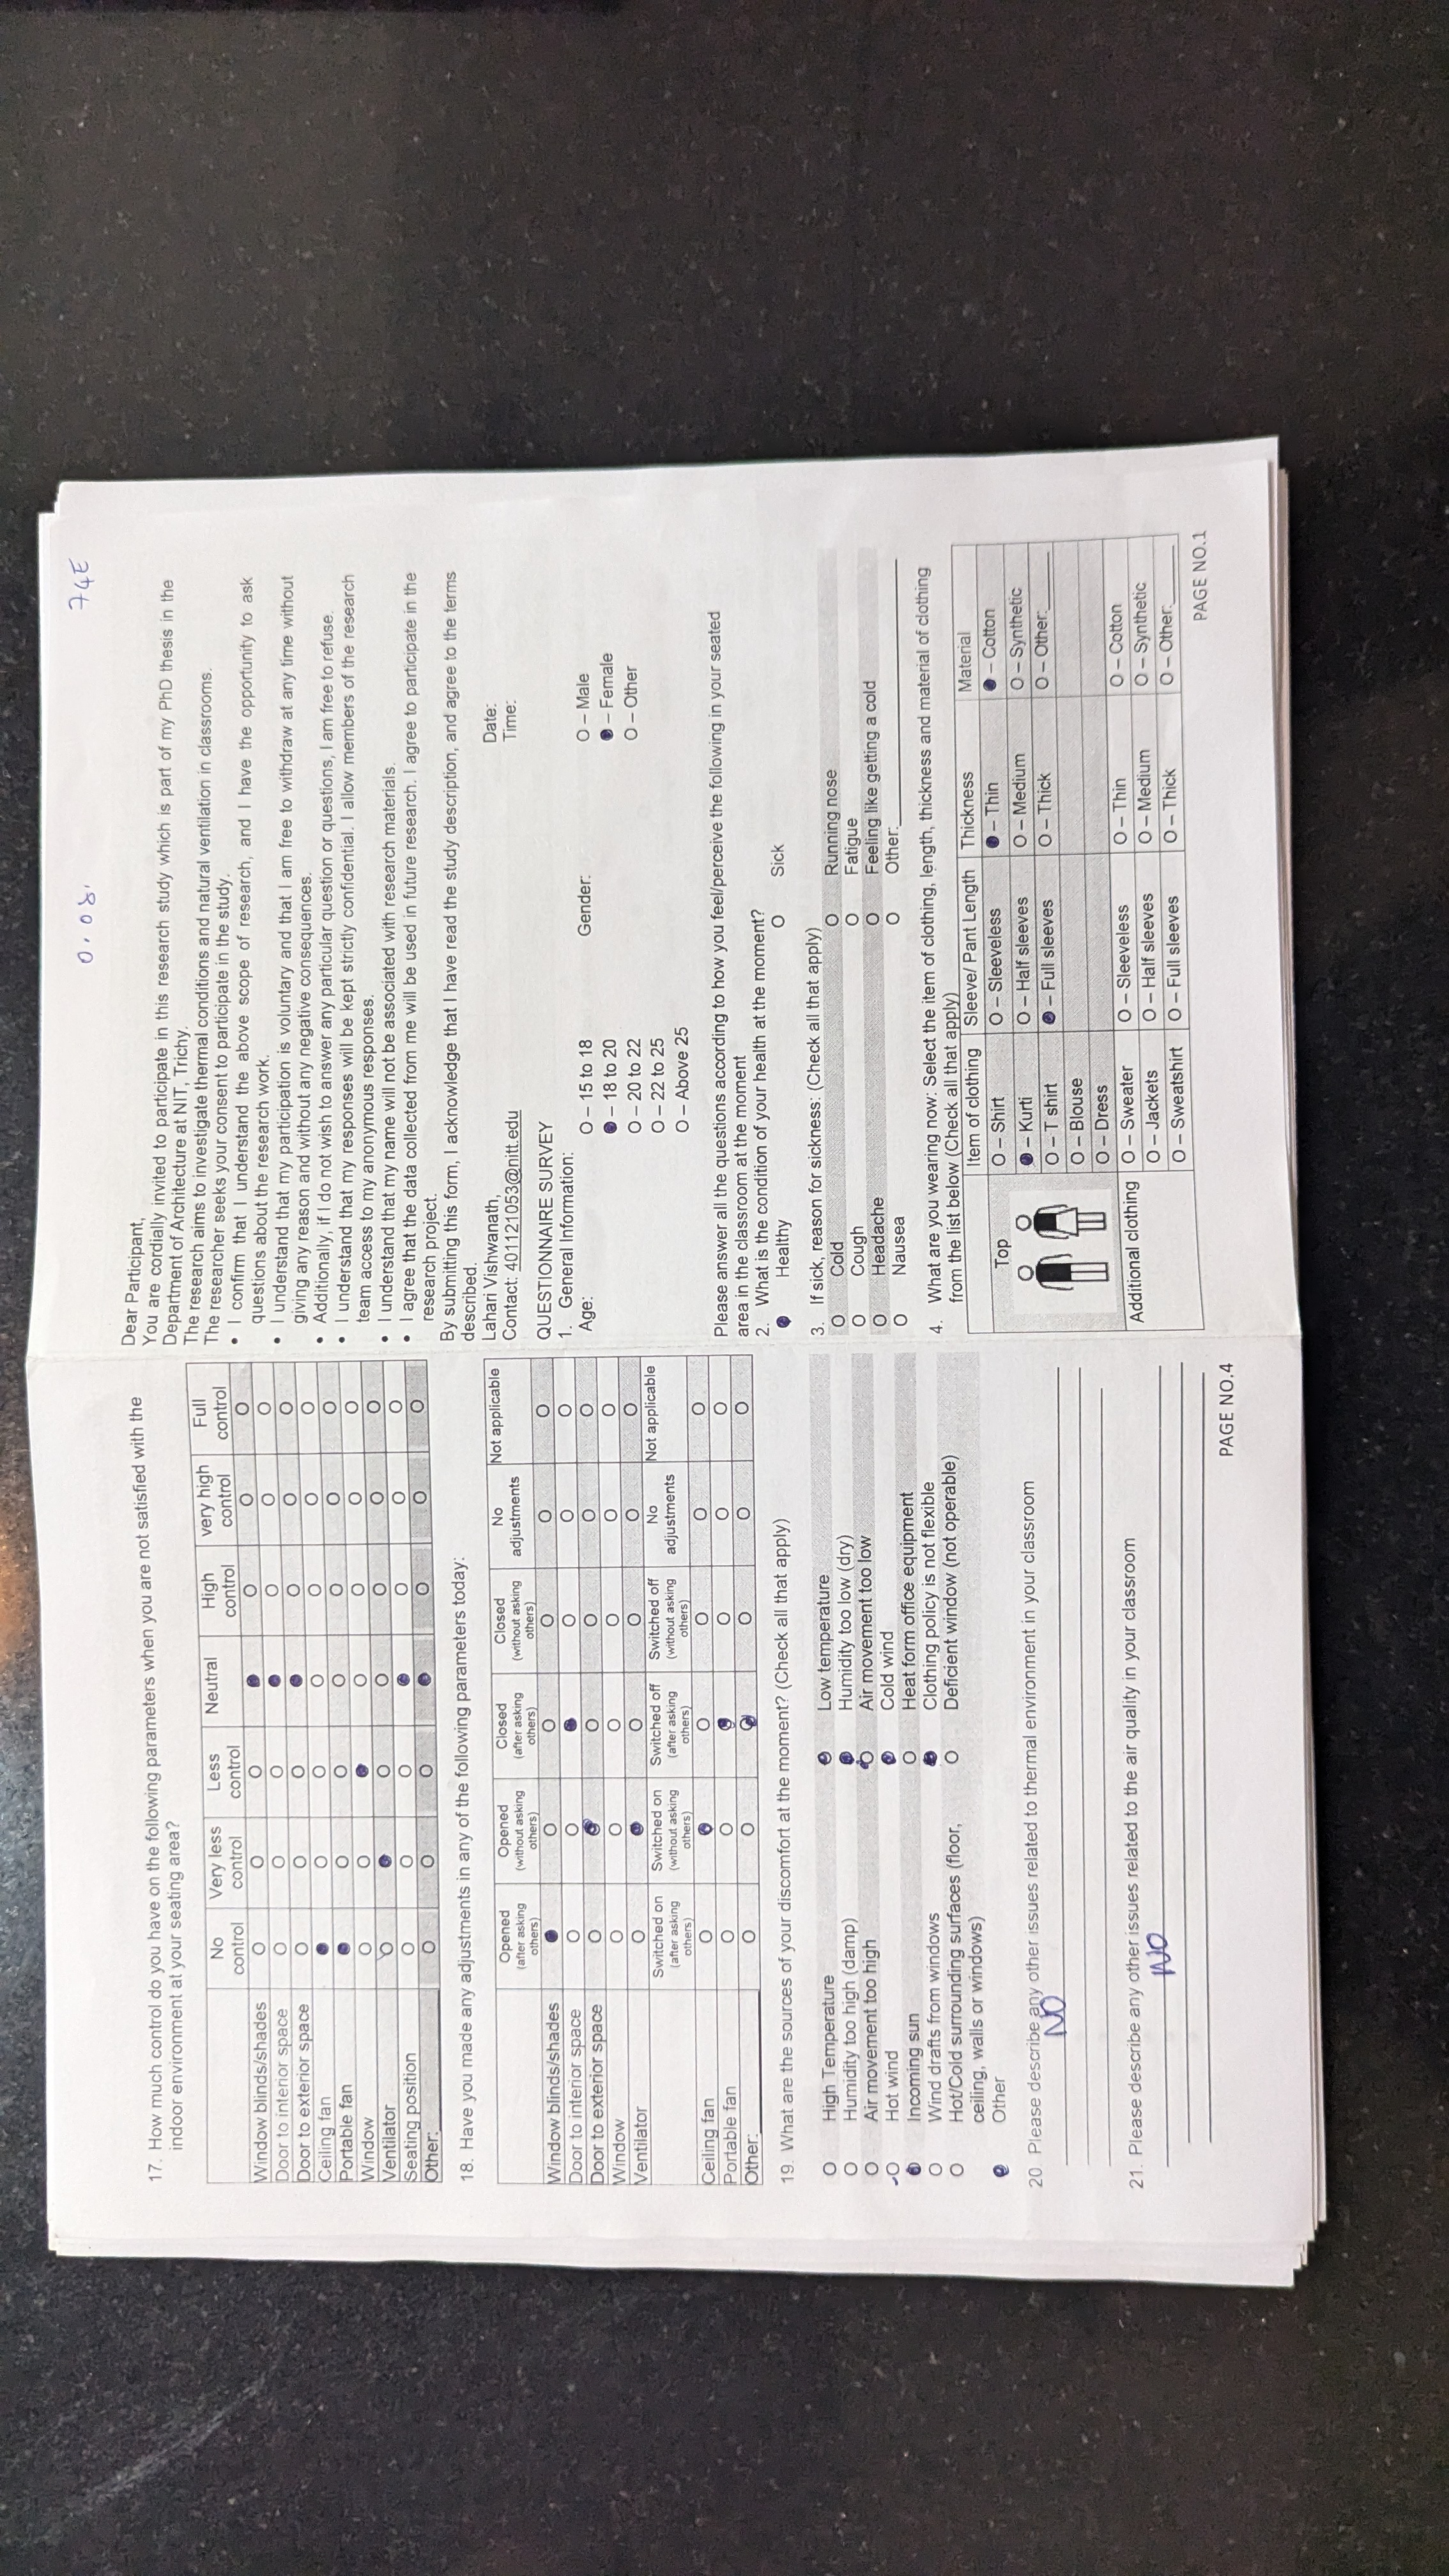 17. How much control do you have on the following parameters when you are not satisfied with the
indoor environment at your seating area?
No control Very less control Less control Neutral High control very high control Full control
Window blinds/shades O O O ● O O O
Door to interior space O O O ● O O O
Door to exterior space O O O ● O O O
Ceiling fan ● O O O O O O
Portable fan ● O O O O O O
Window O O ● O O O O
Ventilator O ● O O O O O
Seating position O O O ● O O O
Other: O O O ● O O O
18. Have you made any adjustments in any of the following parameters today:
Opened (after asking others) Opened (without asking others) Closed (after asking others) Closed (without asking others) No adjustments Not applicable
Window blinds/shades ● O O O O O
Door to interior space O O ● O O O
Door to exterior space O ● O O O O
Window O O O O O O
Ventilator O ● O O O O
Switched on (after asking others) Switched on (without asking others) Switched off (after asking others) Switched off (without asking others) No adjustments Not applicable
Ceiling fan O ● O O O O
Portable fan O O ● O O O
Other: O O ● O O O
19. What are the sources of your discomfort at the moment? (Check all that apply)
O High Temperature ● Low temperature
O Humidity too high (damp) ● Humidity too low (dry)
O Air movement too high O Air movement too low
O Hot wind ● Cold wind
● Incoming sun O Heat form office equipment
O Wind drafts from windows ● Clothing policy is not flexible
O Hot/Cold surrounding surfaces (floor, O Deficient window (not operable)
ceiling, walls or windows)
● Other
20. Please describe any other issues related to thermal environment in your classroom
NO
21. Please describe any other issues related to the air quality in your classroom
NO
PAGE NO.4
0.08. 74E
Dear Participant,
You are cordially invited to participate in this research study which is part of my PhD thesis in the
Department of Architecture at NIT, Trichy.
The research aims to investigate thermal conditions and natural ventilation in classrooms.
The researcher seeks your consent to participate in the study.
• I confirm that I understand the above scope of research, and I have the opportunity to ask
questions about the research work.
• I understand that my participation is voluntary and that I am free to withdraw at any time without
giving any reason and without any negative consequences.
• Additionally, if I do not wish to answer any particular question or questions, I am free to refuse.
• I understand that my responses will be kept strictly confidential. I allow members of the research
team access to my anonymous responses.
• I understand that my name will not be associated with research materials.
• I agree that the data collected from me will be used in future research. I agree to participate in the
research project.
By submitting this form, I acknowledge that I have read the study description, and agree to the terms
described.
Lahari Vishwanath, Date:
Contact: 401121053@nitt.edu Time:
QUESTIONNAIRE SURVEY
1. General Information:
Age: O – 15 to 18 Gender: O – Male
● – 18 to 20 ● – Female
O – 20 to 22 O – Other
O – 22 to 25
O – Above 25
Please answer all the questions according to how you feel/perceive the following in your seated
area in the classroom at the moment
2. What is the condition of your health at the moment?
● Healthy O Sick
3. If sick, reason for sickness: (Check all that apply)
O Cold O Running nose
O Cough O Fatigue
O Headache O Feeling like getting a cold
O Nausea O Other:
4. What are you wearing now: Select the item of clothing, length, thickness and material of clothing
from the list below (Check all that apply)
Item of clothing Sleeve/ Pant Length Thickness Material
Top O – Shirt O – Sleeveless ● – Thin ● – Cotton
● – Kurti O – Half sleeves O – Medium O – Synthetic
O – T shirt ● – Full sleeves O – Thick O – Other:
O – Blouse
O – Dress
Additional clothing O – Sweater O – Sleeveless O – Thin O – Cotton
O – Jackets O – Half sleeves O – Medium O – Synthetic
O – Sweatshirt O – Full sleeves O – Thick O – Other:
PAGE NO.1